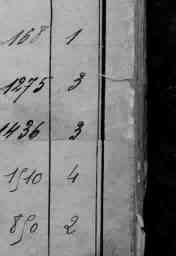 168 1
1275 3
1436 3
1510 4
850 2